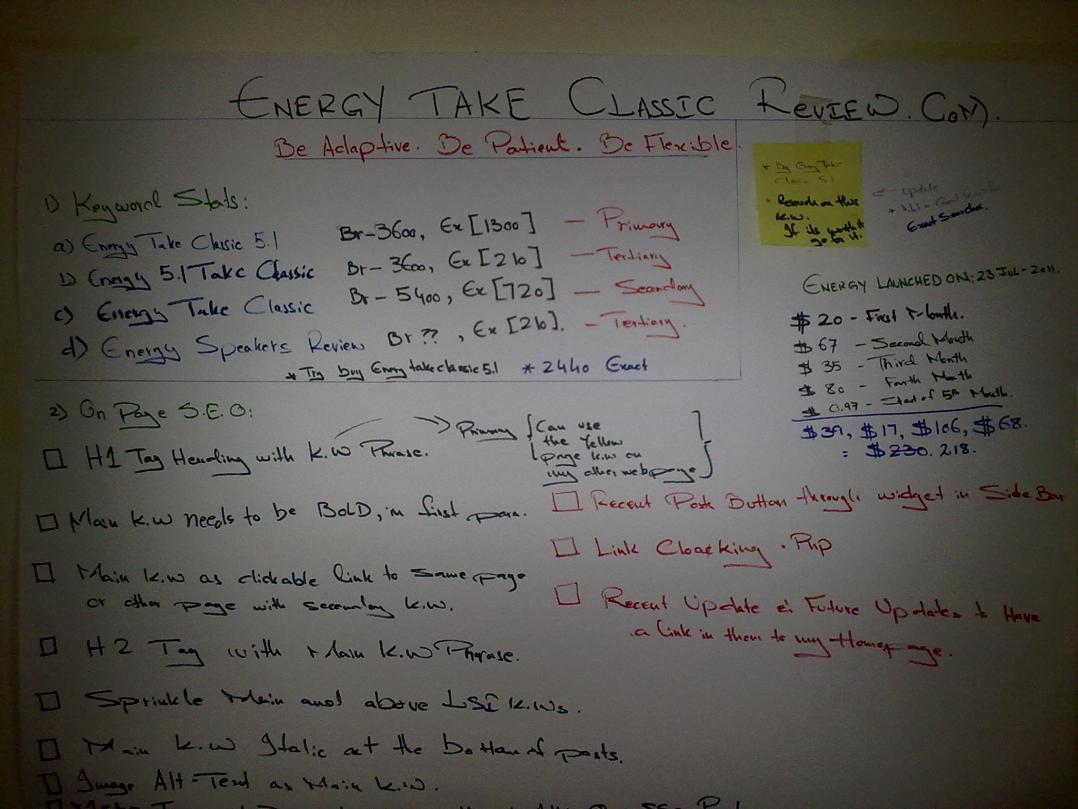 ENERGY TAKE CLASSIC REVIEW.COM.
Be Adaptive. Be Patient. Be Flexible.
1) Keyword Stats:
a) Energy Take Classic 5.1 Br-3600, Ex [1300] — Primary
b) Energy 5.1 Take Classic Br-3600, Ex [210] — Tertiary
c) Energy Take Classic Br-5400, Ex [720] — Secondary
d) Energy Speakers Review Br ??, Ex [210]. — Tertiary.
* Try buy Energy take classic 5.1 * 2440 Exact
* Buy Energy Take
Classic 5.1
Research on this
k.w.
If its worth
go for it.
← Update
Exact Searches.
ENERGY LAUNCHED ON: 23 Jul-2011.
$ 20 - First Month.
$ 67 - Second Month
$ 35 - Third Month
$ 80 - Fourth Month
$ 0.97 - Start of 5th Month.
$39, $17, $106, $68.
= $230. 218.
2) On Page S.E.O:
☐ H1 Tag Heading with K.W Phrase.
Primary
Can use
the Yellow
page k.w on
my other webpage
☐ Main k.w needs to be BOLD, in first para.
☐ Main k.w as clickable link to same page
or other page with secondary k.w.
☐ H2 Tag with Main K.W Phrase.
☐ Sprinkle Main and above LSI k.ws.
☐ Main k.w Italic at the bottom of posts.
☐ Image Alt-Text as Main k.w.
☐ Recent Posts Button through widget in Side Bar
☐ Link Cloacking .Php
☐ Recent Update & Future Updates to Have
a link in them to my Homepage.